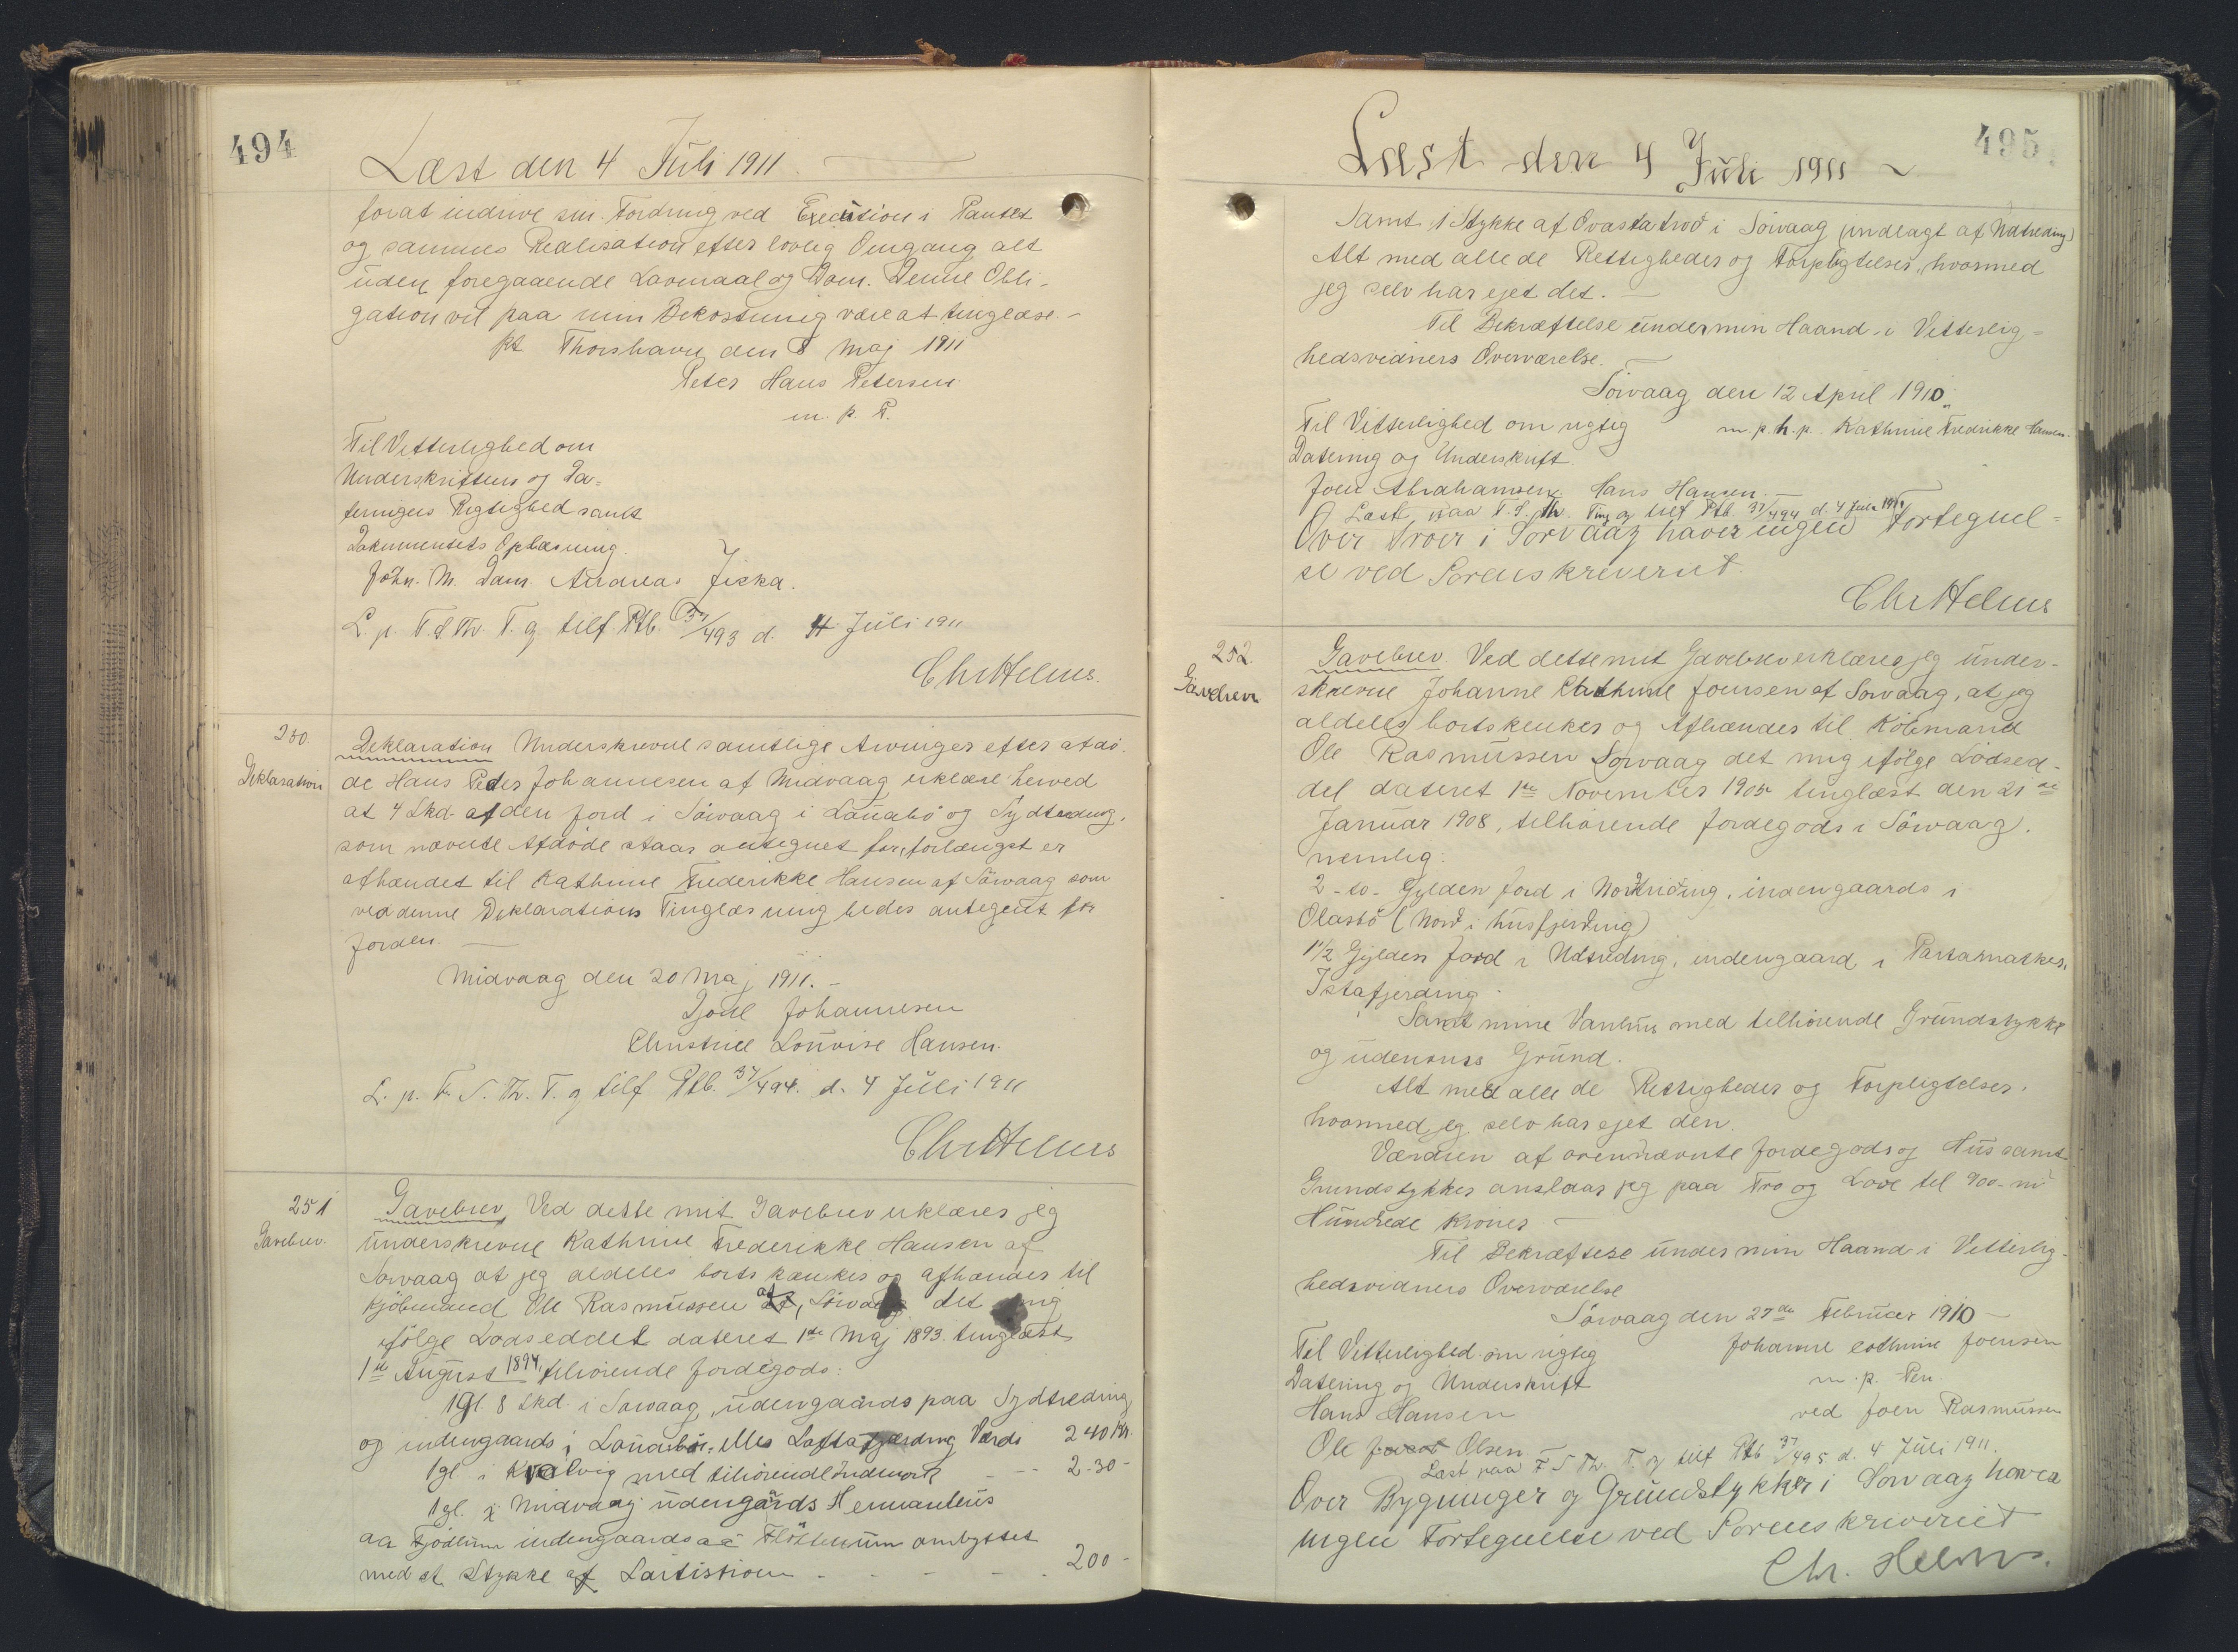 494
Læst den 4 Juli 1911.
forat inddrive sin Fordring ved Execution i Pantet
og sammes Realisation efter lovlig Omgang alt
uden foregaaende Lavmaal og Dom. Denne Obli-
gation vil paa min Bekostning være at tinglæse. -
pt Thorshavn den 8 Maj 1911
Peter Hans Petersen
m. p. P.
Til Vitterlighed om
Underskriftens og Da=
teringens Rigtighed samt
Dokumentets Oplæsning.
John. M. Dam. Andreas Ziska.
L. p. F. S. Th. T. og tilf. Ptb. 37/493 d. 4 Juli 1911
Chr Helms.
250.
Deklaration
Deklaration Underskrevne samtlige Arvinger efter afdö-
de Hans Peder Johannesen af Midvaag erklære herved
at 4 Skd. af den Jord i Sörvaag i Lönabö og Sydtreding,
som nævnte Afdöde staar antegnet for, forlængst er
afhændet til Kathrine Frederikke Hansen af Sörvaag som
ved denne Deklarations Tinglæsning bedes antegnet for
Jorden. -
Midvaag den 20 Maj 1911. -
Johannesen
Christine Louvise Hansen.
L. p. F. S. Th. T. og tilf Ptb. 37/494. d. 4 Juli 1911
Chr Helms
251
Gavebrev.
Gavebrev, Ved dette mit Gavebrev erklærer jeg
underskrevne Kathrine Frederikke Hansen af
Sörvaag at jeg aldeles bortskænker og afhænder til
Kjöbmand Ole Rasmussen af, Sörvaag det mig
ifölge Lodseddel dateret 1ste Maj 1893. tinglæst
1ste August 1894, tilhörende Jordegods:
1 gl. 8 Skd i Sörvaag, udengaards paa Sydtreding
og indengaards i Lönabö, elles Laftafjerding Værdi 240 Kr.
1 gl. i med tilhörende - - - 230 -
1 gl. i Midvaag udengaards
aa indengaards aa ombyttet
med et Stykke af - - - - 200 -
495.
Læst den 4 Juli 1911 ~
Samt 1 Stykke af i Sörvaag (undlagt af Udtreding)
Alt med alle de Rettigheder og Forpligtelser, hvormed
jeg selv har ejet det. -
Til Bekræftelse under min Haand i Vitterlig=
hedsvidners Overværelse. -
Sörvaag den 12 April 1910.
Til Vitterlighed om rigtig m. p. h. p. Kathrine Fredrikke Hansen.
Datering og Underskrift.
Joen Abrahamsen. Hans Hansen. -
Læst paa F. S. Th. Ting og tilf Ptb 37/494 d. 4 Juli 1911
Over Tröer i Sörvaag haves ingen Fortegnel=
se ved Sorenskriveriet.
Chr Helms
252.
Gavebrev
Gavebrev. Ved dette mit Gavebrev erklærer jeg under-
skrevne Johanne Cathrine Joensen af Sörvaag, at jeg
aldeles bortskenker og Afhænder til Köbmand
Ole Rasmussen Sörvaag det mig ifölge Lodsed-
del dateret 1ste November 1905 tinglæst den 21de
Januar 1908, tilhörende Jordegods i Sörvaag.
nemlig:
2 - to - Gylden Jord i Nordtriding, indengaards i
Olasbö (Nord i Husfjerding)
1 1/2 Gylden Jord i Udtreding, indengaard, i
Samt mine Vanhus med tilhörende Grundstykke
og udenoms Grund.
Alt med alle de Rettigheder og Forpligtelser.
hvormed jeg selv har ejet den.
Værdien af ovennævnte Jordegods og Hus samt
Grundstykker anslaar jeg paa Tro og Love til 900 - ni
Hundrede Kroner -
Til Bekræftese under min Haand i Vitterlig-
hedsvidners Overværelse
Sörvaag den 27de Februar 1910 -
Til Vitterlighed om rigtig Johanne Cathrine Joensen
Datering og Underskrift m. p. Pen.
Hans Hansen ved Joen Rasmussen
Ole Olsen
Læst paa F S Th. T. og tilf Ptb 37/495 d. 4 Juli 1911.
Over Bygninger og Grundstykker i Sörvaag haves
ingen Fortegnelse ved Sorenskriveriet
Chr. Helms.